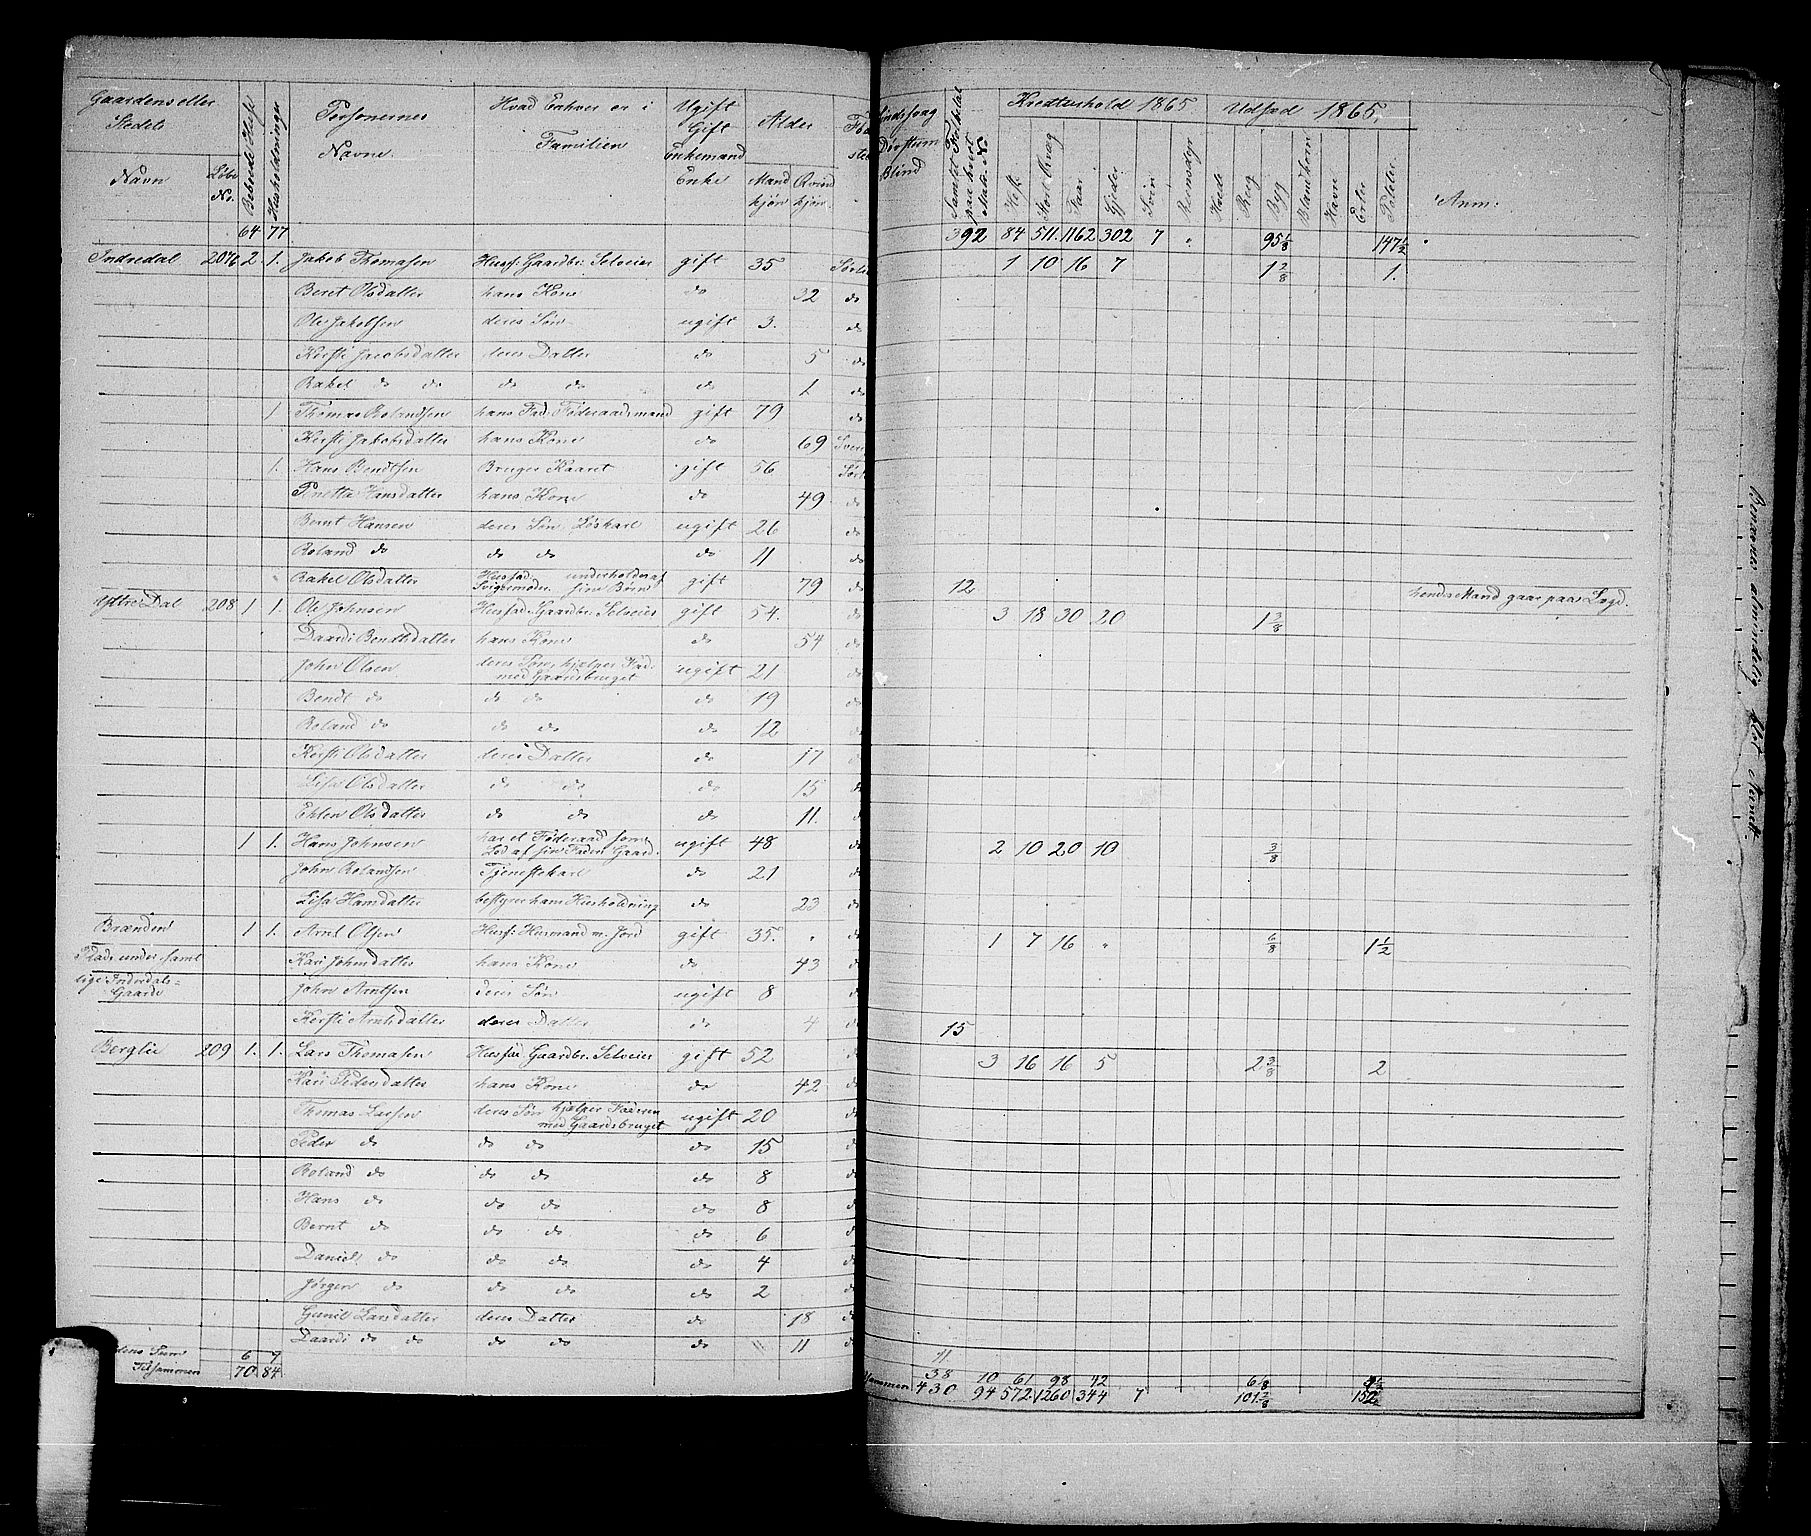 Gaardens eller Stedets
Navn Løbe No. Beboede Huse Husholdninger
Personernes Navne.
Hvad Enhver er i Familien
Ugift Gift Enkemand Enke
Alder
Mandkjøn Qvindekjøn
Sindssvag Døvstum Blind
Samlet Folketal paa hvert Matr. No
Kreaturhold 1865 Udsæd 1865.
Heste Stort Qvæg Faar Gjeder Sviin Reensdyr Hvede Rug Byg Blandkorn Havre Erter Poteter
Anm:
64 77 392 84 511. 1162 302 7 " 95 1/8 147 1/2
Indredal 207b 2. 1. Jakob Thomasen Husf: Gaardbr. Selveier gift 35 1 10 16 7 1 2/8 1.
Beret Olsdatter hans Kone do 32 do
Ole Jakobsen deres Søn ugift 3. do
Kersti Jacobsdatter deres Datter do 5 do
Rakel do do do do do 1 do
1 Thomas Rolandsen hans Fad: Føderaadsmand gift 79 do
Kersti Jakobsdatter hans Kone do 69
1. Hans Bendtsen Bruger Kaaret gift 56
Penetta Hansdatter hans Kone do 49 do
Bernt Hansen deres Søn Løskarl ugift 26 do
Roland do do do do 11 do
Rakel Olsdatter Husfad. Svigermoder underholdes af sine Børn gift 79 do 12 hendes Mand gaar paa Lægd.
Yttre Dal 208 1 1. Ole Johnsen Husfad. Gaardbr. Selveier gift 54. do 3 18 30 20 1 3/8
Daardi Bendtsdatter hans Kone do 54 do
John Olsen deres Søn, hjelper Fad. med Gaardsbruget ugift 21 do
Bendt do do do do 19 do
Roland do do do do 12 do
Kersti Olsdatter deres Datter do 17 do
Lisa Olsdatter do do do 15 do
Ehlen Olsdatter do do do 11. do
1 1. Hans Johnsen har et Føderaad som Lod af sin Faders Gaard. ugift 48 do 2 10 20 10 3/8
John Rolandsen Tjenestekarl do 21 do
Lisa Hansdatter bestyrer hans Husholdning do 23 do
Brænden 1 1. Arnt Olsen Husf: Husmand m. Jord gift 35. " do 1 7 16 " 6/8 1 1/2
Plads under samt Kari Johnsdatter hans Kone do 43 do
lige Inderdals= Gaarde John Arntsen deres Søn ugift 8 do
Kersti Arntsdatter deres Datter do 4 do 15
Berglie 209 1. 1. Lars Thomasen Husfad. Gaardbr. Selveier gift 52 do 3 16 16 5 2 3/8 2
Kari Pedersdatter hans Kone do 42 do
Thomas Larsen deres Søn hjelper Faderen med Gaardsbruget ugift 20 do
Peder do do do do 15 do
Roland do do do do 8 do
Hans do do do do 8 do
Bernt do do do do 6 do
Daniel do do do do 4 do
Jørgen do do do do 2 do
Gunil Larsdatter deres Datter do 18 do
Daardi do do do do do " 11 do 11
Sidens Sum 6 7 38 10 61 98 42 6 4 1/2
Tilsammen 70 84 430 94 572. 1260 344 7 101 3/8 152